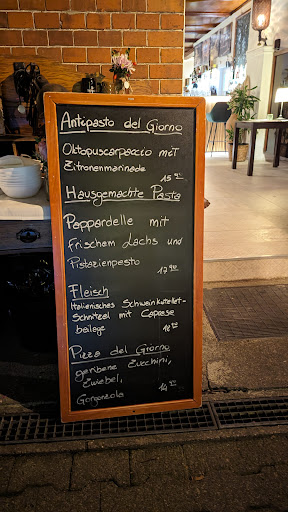 Antipasto del Giorno
Oktopuscarpaccio mit
Zitronenmarinade
15
Hausgemachte Pasta
Pappardelle mit
frischem Lachs und
Pistazienpesto
17,90
Fleisch
Italienisches Schweinkotelet-
Schnitzel mit Caprese
beilage
Pizza del Giorno
geriebene Zucchini,
Zwiebel,
Gorgonzola
14